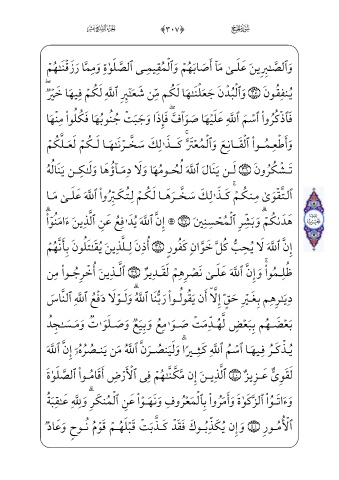 ﴿٣٠٧﴾
وَٱلصَّٰبِرِينَ عَلَىٰ مَآ أَصَابَهُمْ وَٱلْمُقِيمِى ٱلصَّلَوٰةِ وَمِمَّا رَزَقْنَٰهُمْ
يُنفِقُونَ وَٱلْبُدْنَ جَعَلْنَٰهَا لَكُم مِّن شَعَٰٓئِرِ ٱللَّهِ لَكُمْ فِيهَا خَيْرٌ ۖ
فَٱذْكُرُوا۟ ٱسْمَ ٱللَّهِ عَلَيْهَا صَوَآفَّ ۖ فَإِذَا وَجَبَتْ جُنُوبُهَا فَكُلُوا۟ مِنْهَا
وَأَطْعِمُوا۟ ٱلْقَانِعَ وَٱلْمُعْتَرَّ ۚ كَذَٰلِكَ سَخَّرْنَٰهَا لَكُمْ لَعَلَّكُمْ
تَشْكُرُونَ لَن يَنَالَ ٱللَّهَ لُحُومُهَا وَلَا دِمَآؤُهَا وَلَٰكِن يَنَالُهُ
ٱلتَّقْوَىٰ مِنكُمْ ۚ كَذَٰلِكَ سَخَّرَهَا لَكُمْ لِتُكَبِّرُوا۟ ٱللَّهَ عَلَىٰ مَا
هَدَىٰكُمْ ۗ وَبَشِّرِ ٱلْمُحْسِنِينَ ۞ إِنَّ ٱللَّهَ يُدَٰفِعُ عَنِ ٱلَّذِينَ ءَامَنُوٓا۟ ۗ
إِنَّ ٱللَّهَ لَا يُحِبُّ كُلَّ خَوَّانٍ كَفُورٍ أُذِنَ لِلَّذِينَ يُقَٰتَلُونَ بِأَنَّهُمْ
ظُلِمُوا۟ ۚ وَإِنَّ ٱللَّهَ عَلَىٰ نَصْرِهِمْ لَقَدِيرٌ ٱلَّذِينَ أُخْرِجُوا۟ مِن
دِيَٰرِهِم بِغَيْرِ حَقٍّ إِلَّآ أَن يَقُولُوا۟ رَبُّنَا ٱللَّهُ ۗ وَلَوْلَا دَفْعُ ٱللَّهِ ٱلنَّاسَ
بَعْضَهُم بِبَعْضٍ لَّهُدِّمَتْ صَوَٰمِعُ وَبِيَعٌ وَصَلَوَٰتٌ وَمَسَٰجِدُ
يُذْكَرُ فِيهَا ٱسْمُ ٱللَّهِ كَثِيرًا ۗ وَلَيَنصُرَنَّ ٱللَّهُ مَن يَنصُرُهُۥٓ ۗ إِنَّ ٱللَّهَ
لَقَوِىٌّ عَزِيزٌ ٱلَّذِينَ إِن مَّكَّنَّٰهُمْ فِى ٱلْأَرْضِ أَقَامُوا۟ ٱلصَّلَوٰةَ
وَءَاتَوُا۟ ٱلزَّكَوٰةَ وَأَمَرُوا۟ بِٱلْمَعْرُوفِ وَنَهَوْا۟ عَنِ ٱلْمُنكَرِ ۗ وَلِلَّهِ عَٰقِبَةُ
ٱلْأُمُورِ وَإِن يُكَذِّبُوكَ فَقَدْ كَذَّبَتْ قَبْلَهُمْ قَوْمُ نُوحٍ وَعَادٌ